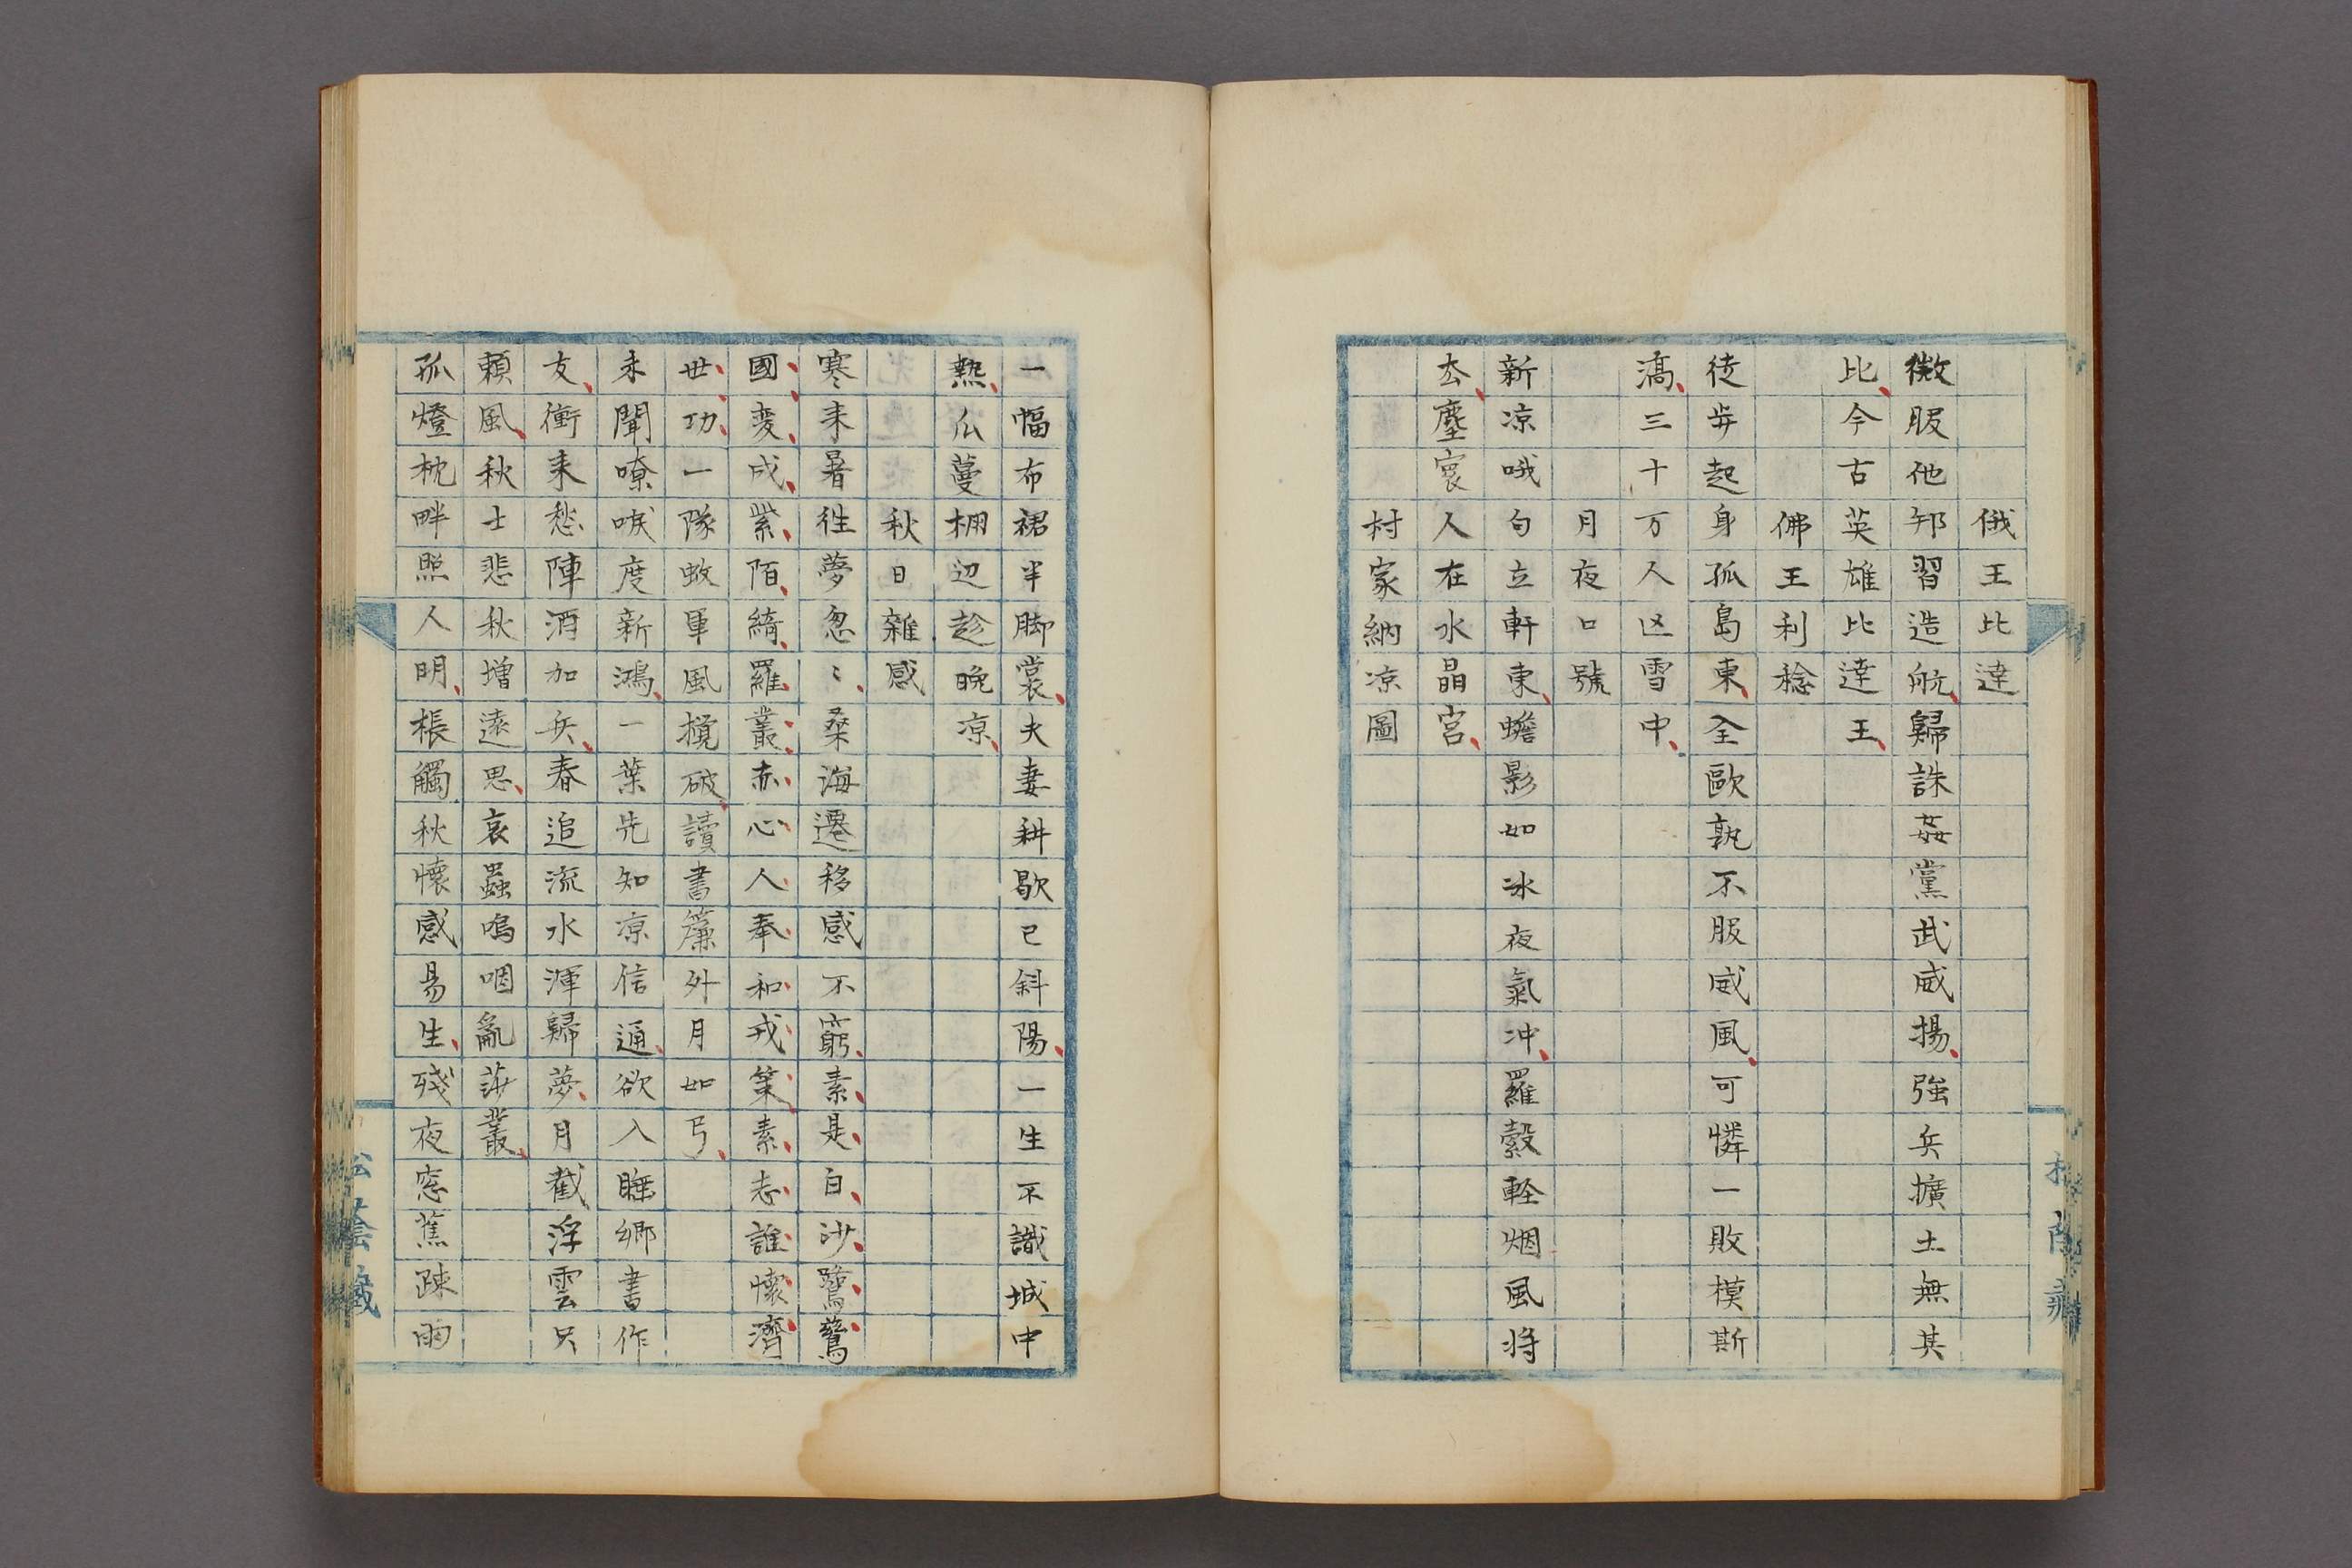 俄王比達
微服他邦習造航歸誅姦黨武威揚強兵擴土無其
比今古英雄比達王
佛王利稔
徒歩起身孤島東全歐孰不服威風可憐一敗模斯
滈三十万人凶雪中
月夜口號
新凉哦句立軒東蟾影如冰夜氣冲羅縠軽烟風将
去塵寰人在水晶宮
村家納凉圖
一幅布裙半脚裳夫妻耕歇已斜陽一生不識城中
熱瓜蔓棚辺趁晩凉
秋日雑感
寒来暑徃夢怱〻桑海遷移感不窮素是白沙鷺鷥
國変成紫陌綺羅叢赤心人奉和戎策素志誰懐濟
世功一隊蚊軍風攪破讀書簾外月如弓
未聞嘹唳度新鴻一葉先知凉信通欲入睡郷書作
友衝来愁陣酒加兵春追流水渾歸夢月截浮雲只
頼風秋士悲秋増遠思哀蟲鳴咽亂莎叢
孤燈枕畔照人明棖觸秋懐感易生殘夜窓蕉踈雨